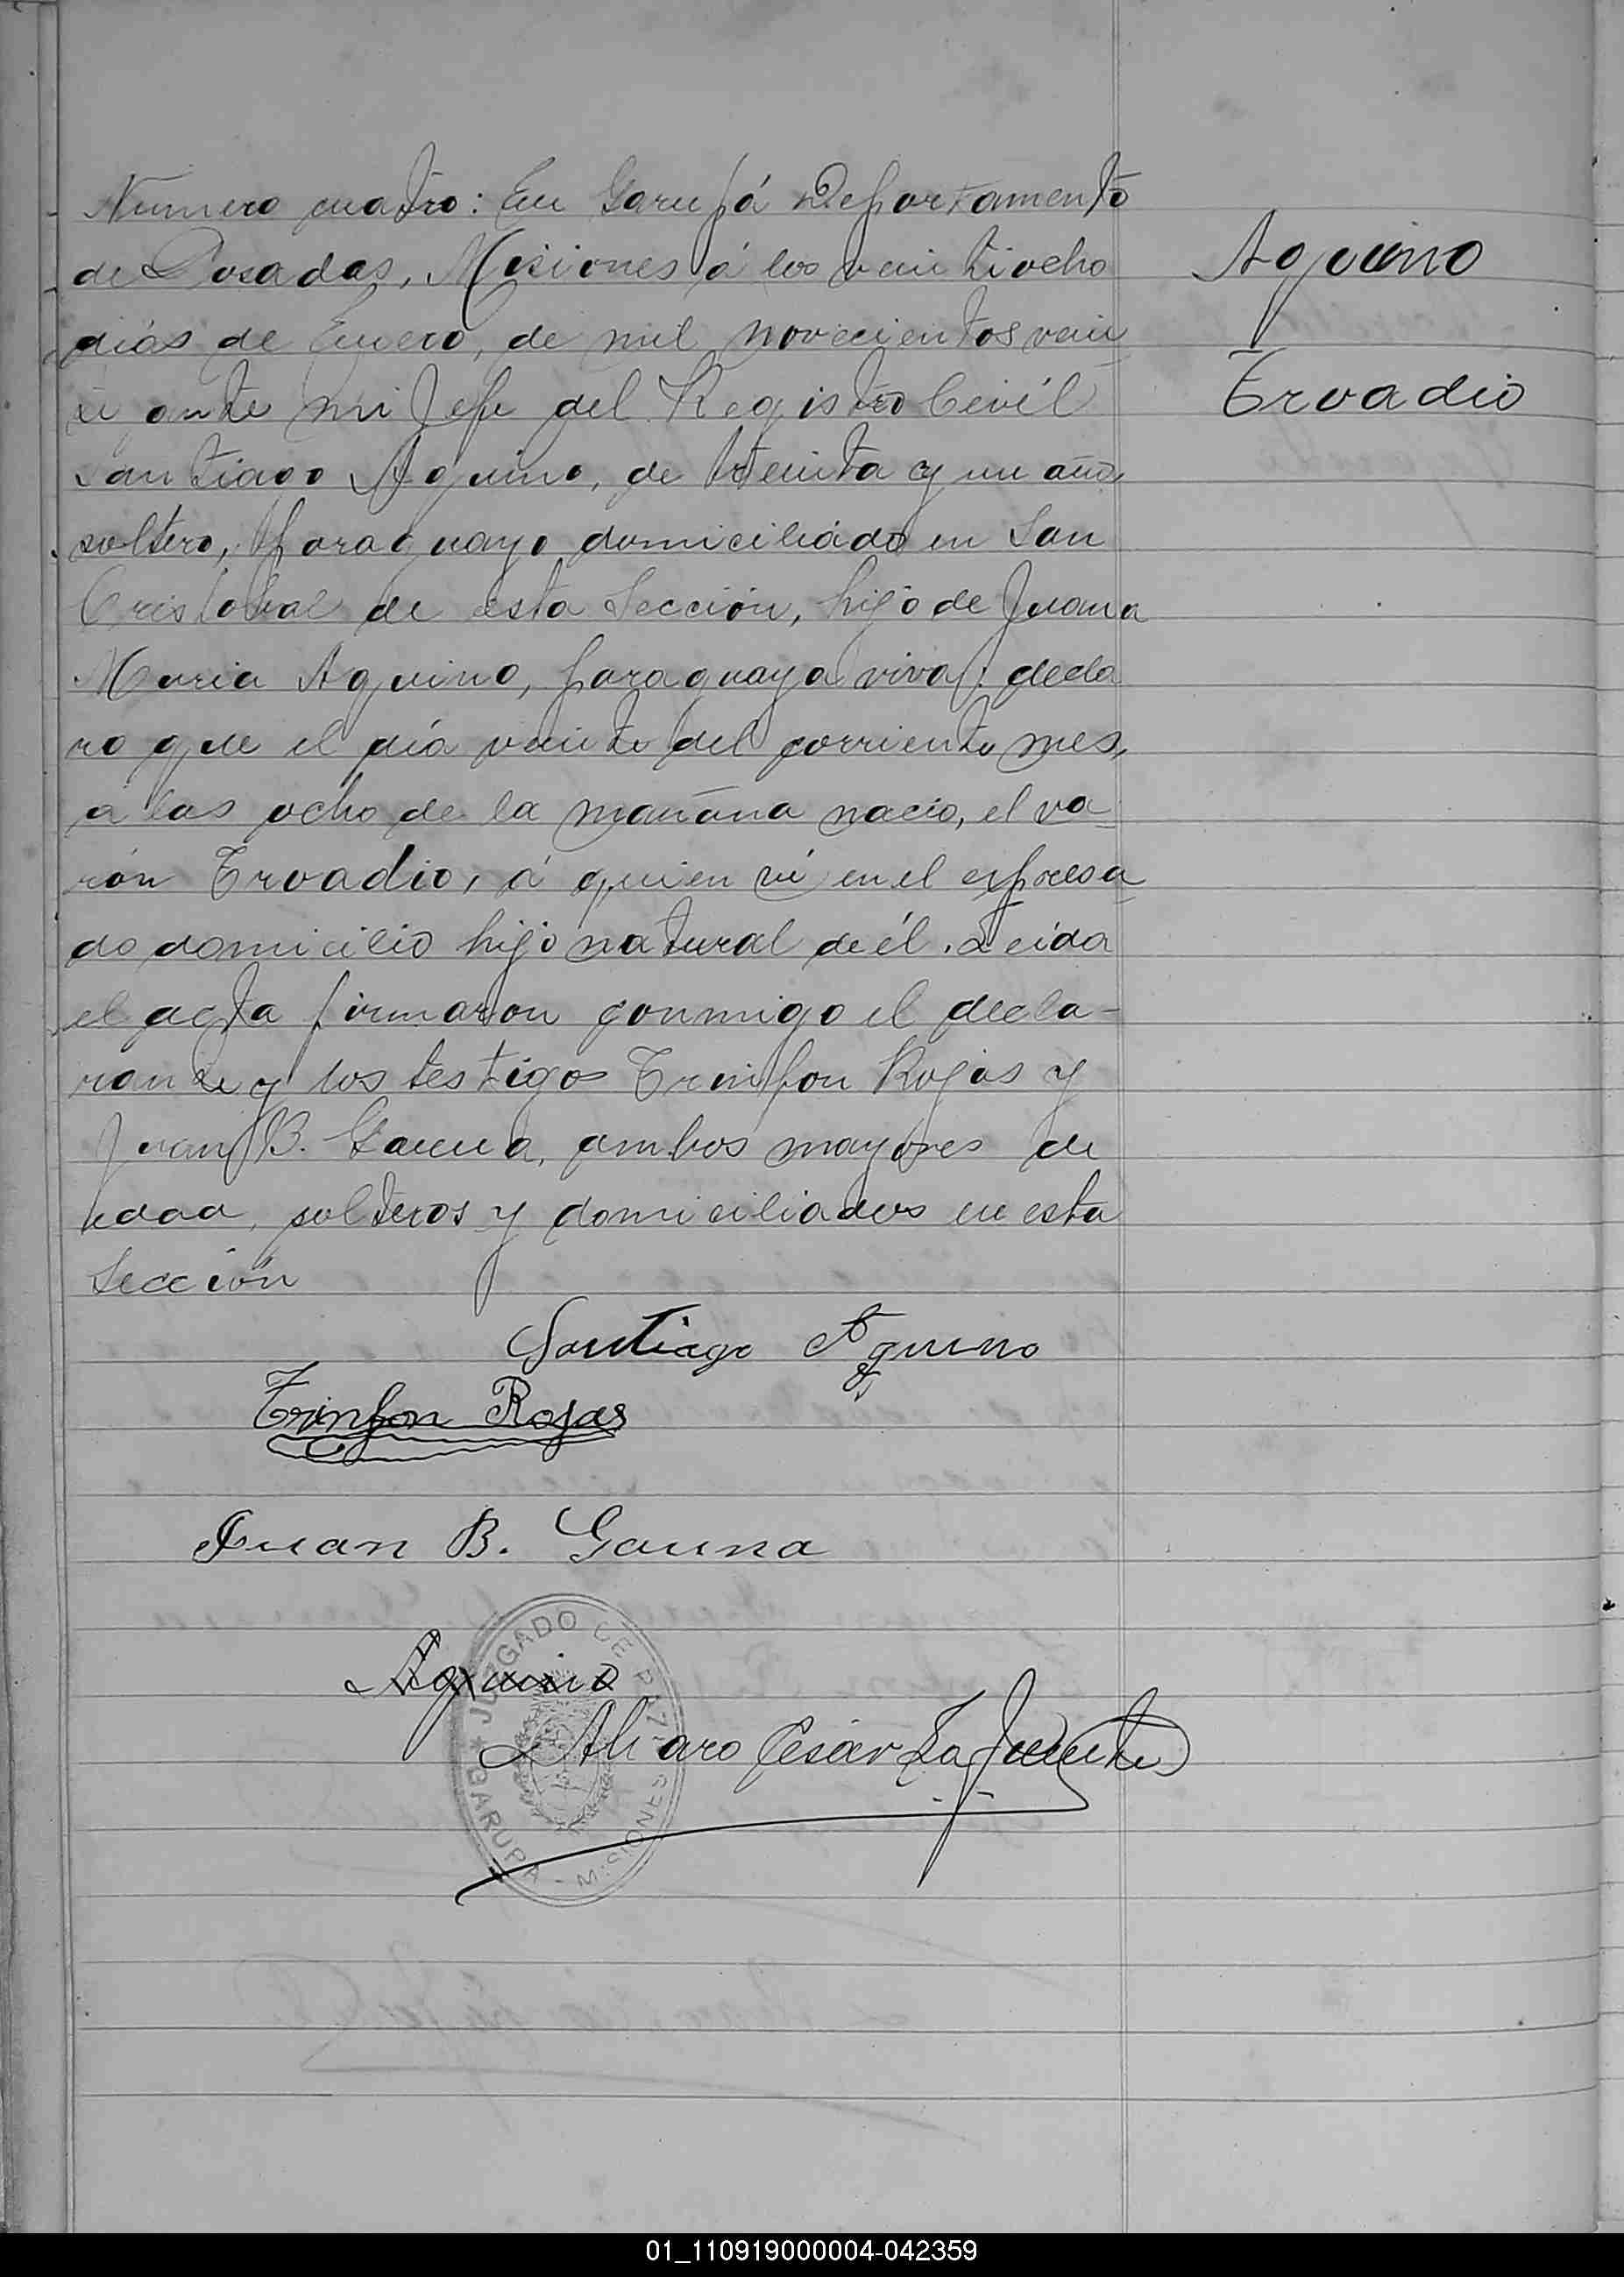 Número cuatro: En Garupá Departamento
de Posadas, Misiones á los veintiocho
Aquino
días de Enero, de mil novecientos vein
te ante mi Jefe del Registro Civil
Ervadio
Santiago Aquino, de treinta y un año,
soltero, paraguayo domiciliado en San
Cristobal de esta Sección, hijo de Juana
Maria Aquino, paraguaya viva; decla
ro que el día veinte del corriente mes,
a las ocho de la mañana nacío, el va-
rón Ervadio, á quien ví en el expresa-
do domicilio hijo natural de él. Leida
el acta firmaron conmigo el decla-
rante y los testigos Trinfon Rojas y
Juan B. Gauna, ambos mayores de
edad, solteros y domiciliados en esta
Sección
Santiago Aquino
Trinfon Rojas
Juan B. Gauna
Aquino
Alvaro César Lafuente
JUZGADO DE PAZ
GARUPA - MISIONES
01_110919000004-042359